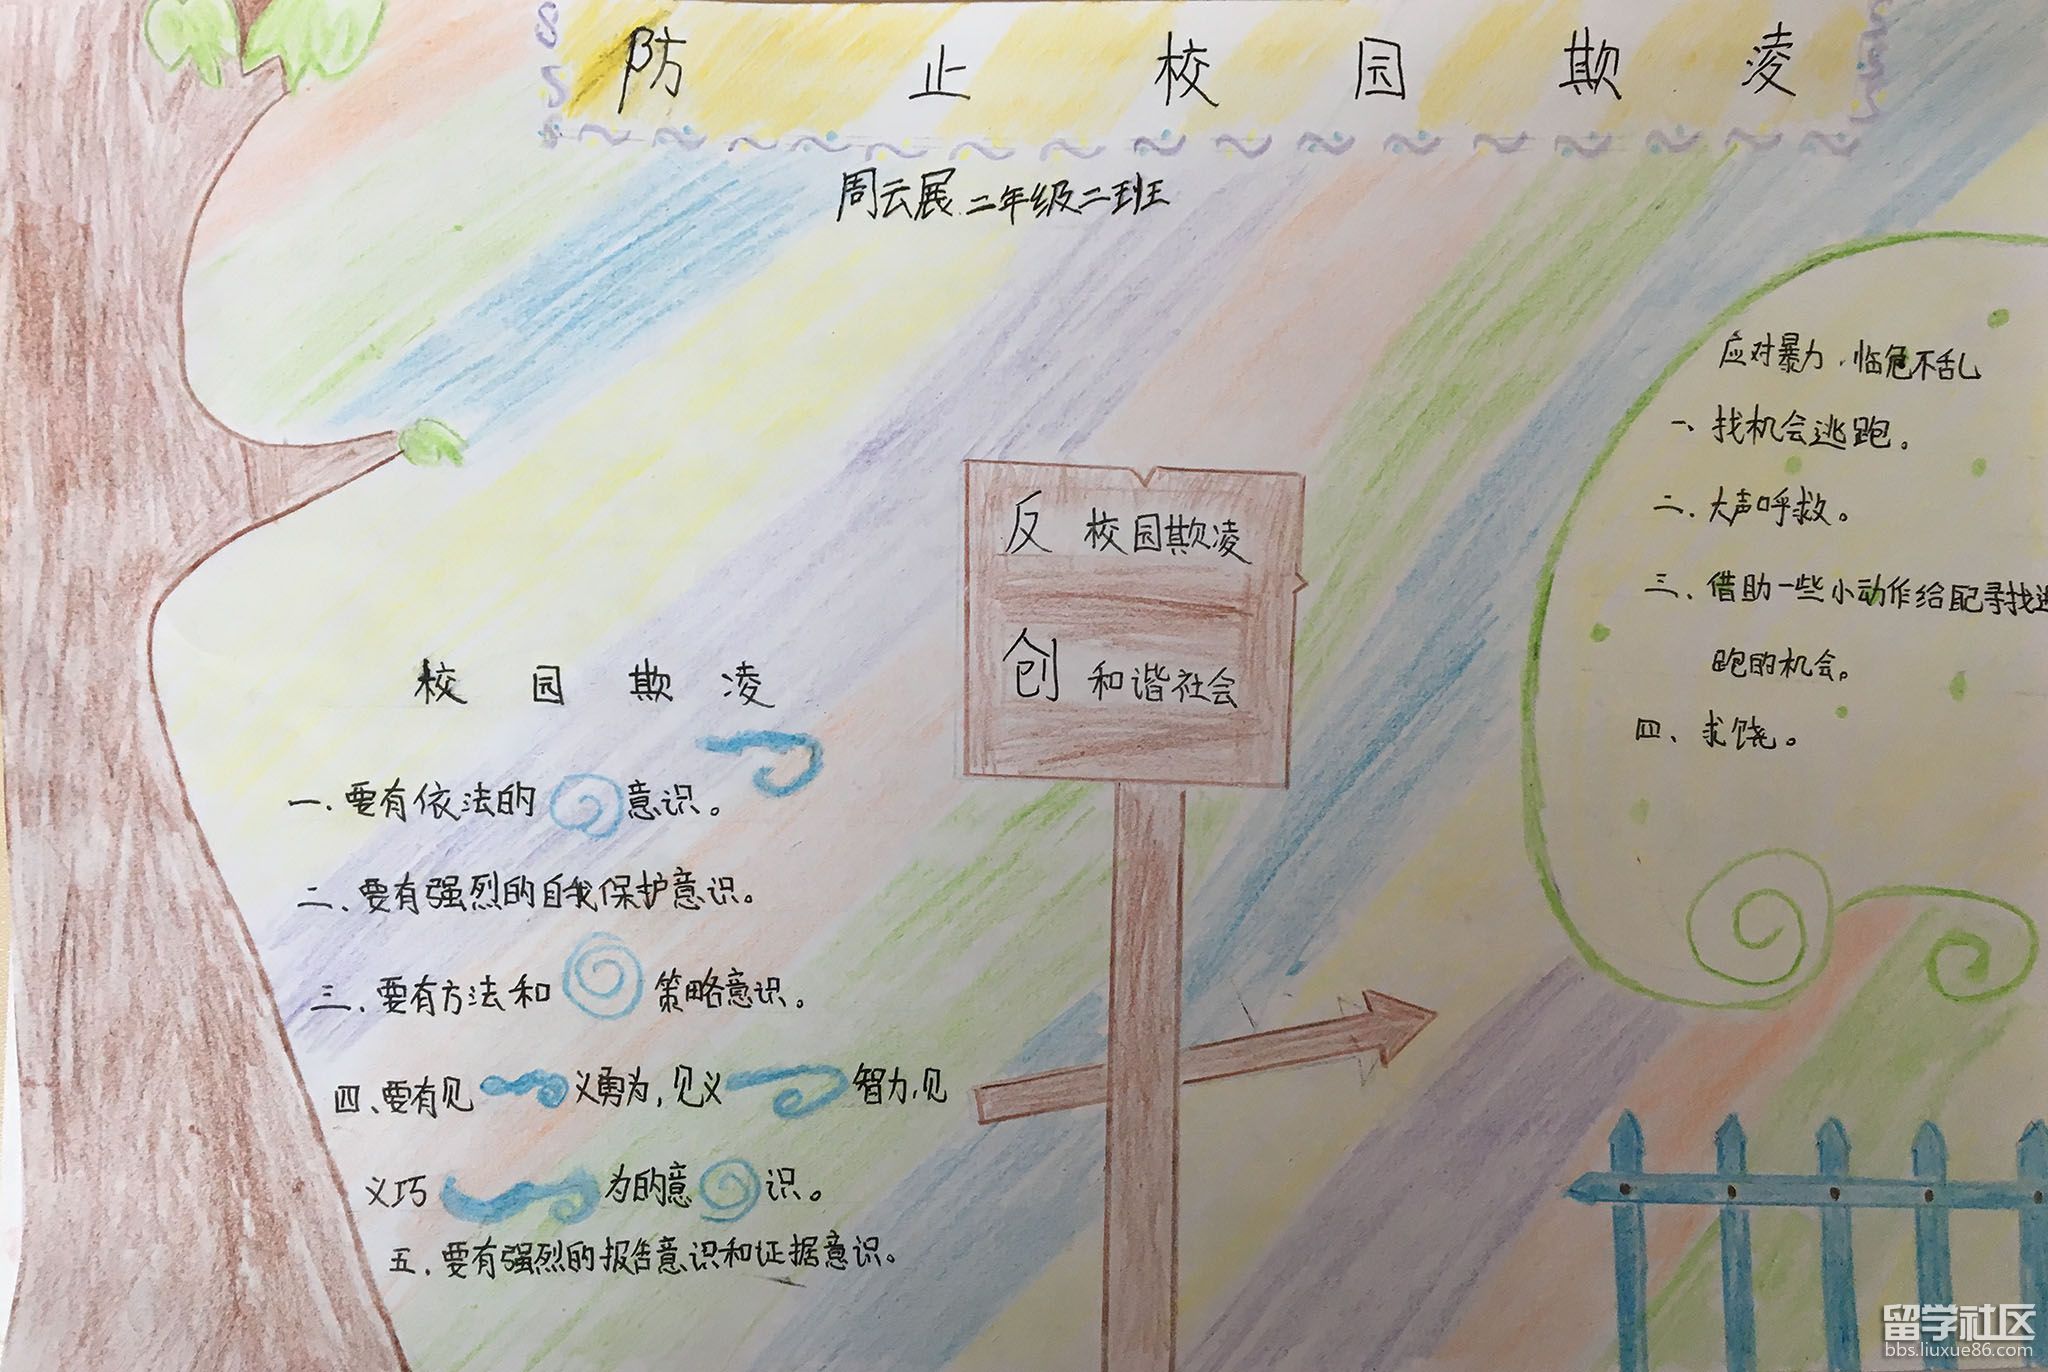 防止校园欺凌
周云展二年级二班
应对暴力.临危不乱
一、找机会逃跑。
二.大声呼救。
三.借助一些小动作给配寻找逃
跑的机会。
四、求饶。
反 校园欺凌
创 和谐社会
校园欺凌
一.要有依法的意识。
二、要有强烈的自我保护意识。
三、要有方法和策略意识。
四、要有见义勇为,见义智力,见
义巧为的意识。
五.要有强烈的报告意识和证据意识。
留学社区
bbs.liuxue86.com